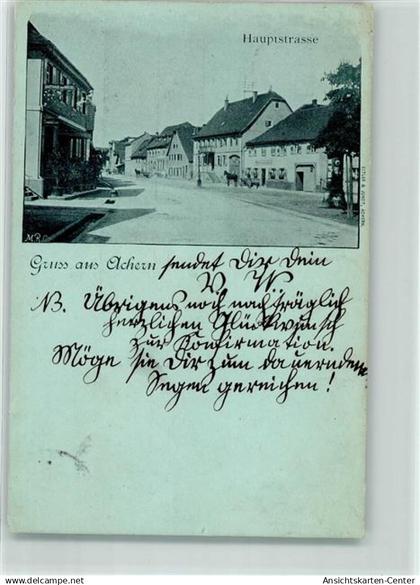 Hauptstrasse
M.R.C.
Gruss aus Achern sendet Dir Dein
V. W.
NB. Übrigens noch nachträglich
herzlichen Glückwunsch
zur Konfirmation.
Möge sie Dir zum dauernden
Segen gereichen!
Ansichtskarten-Center